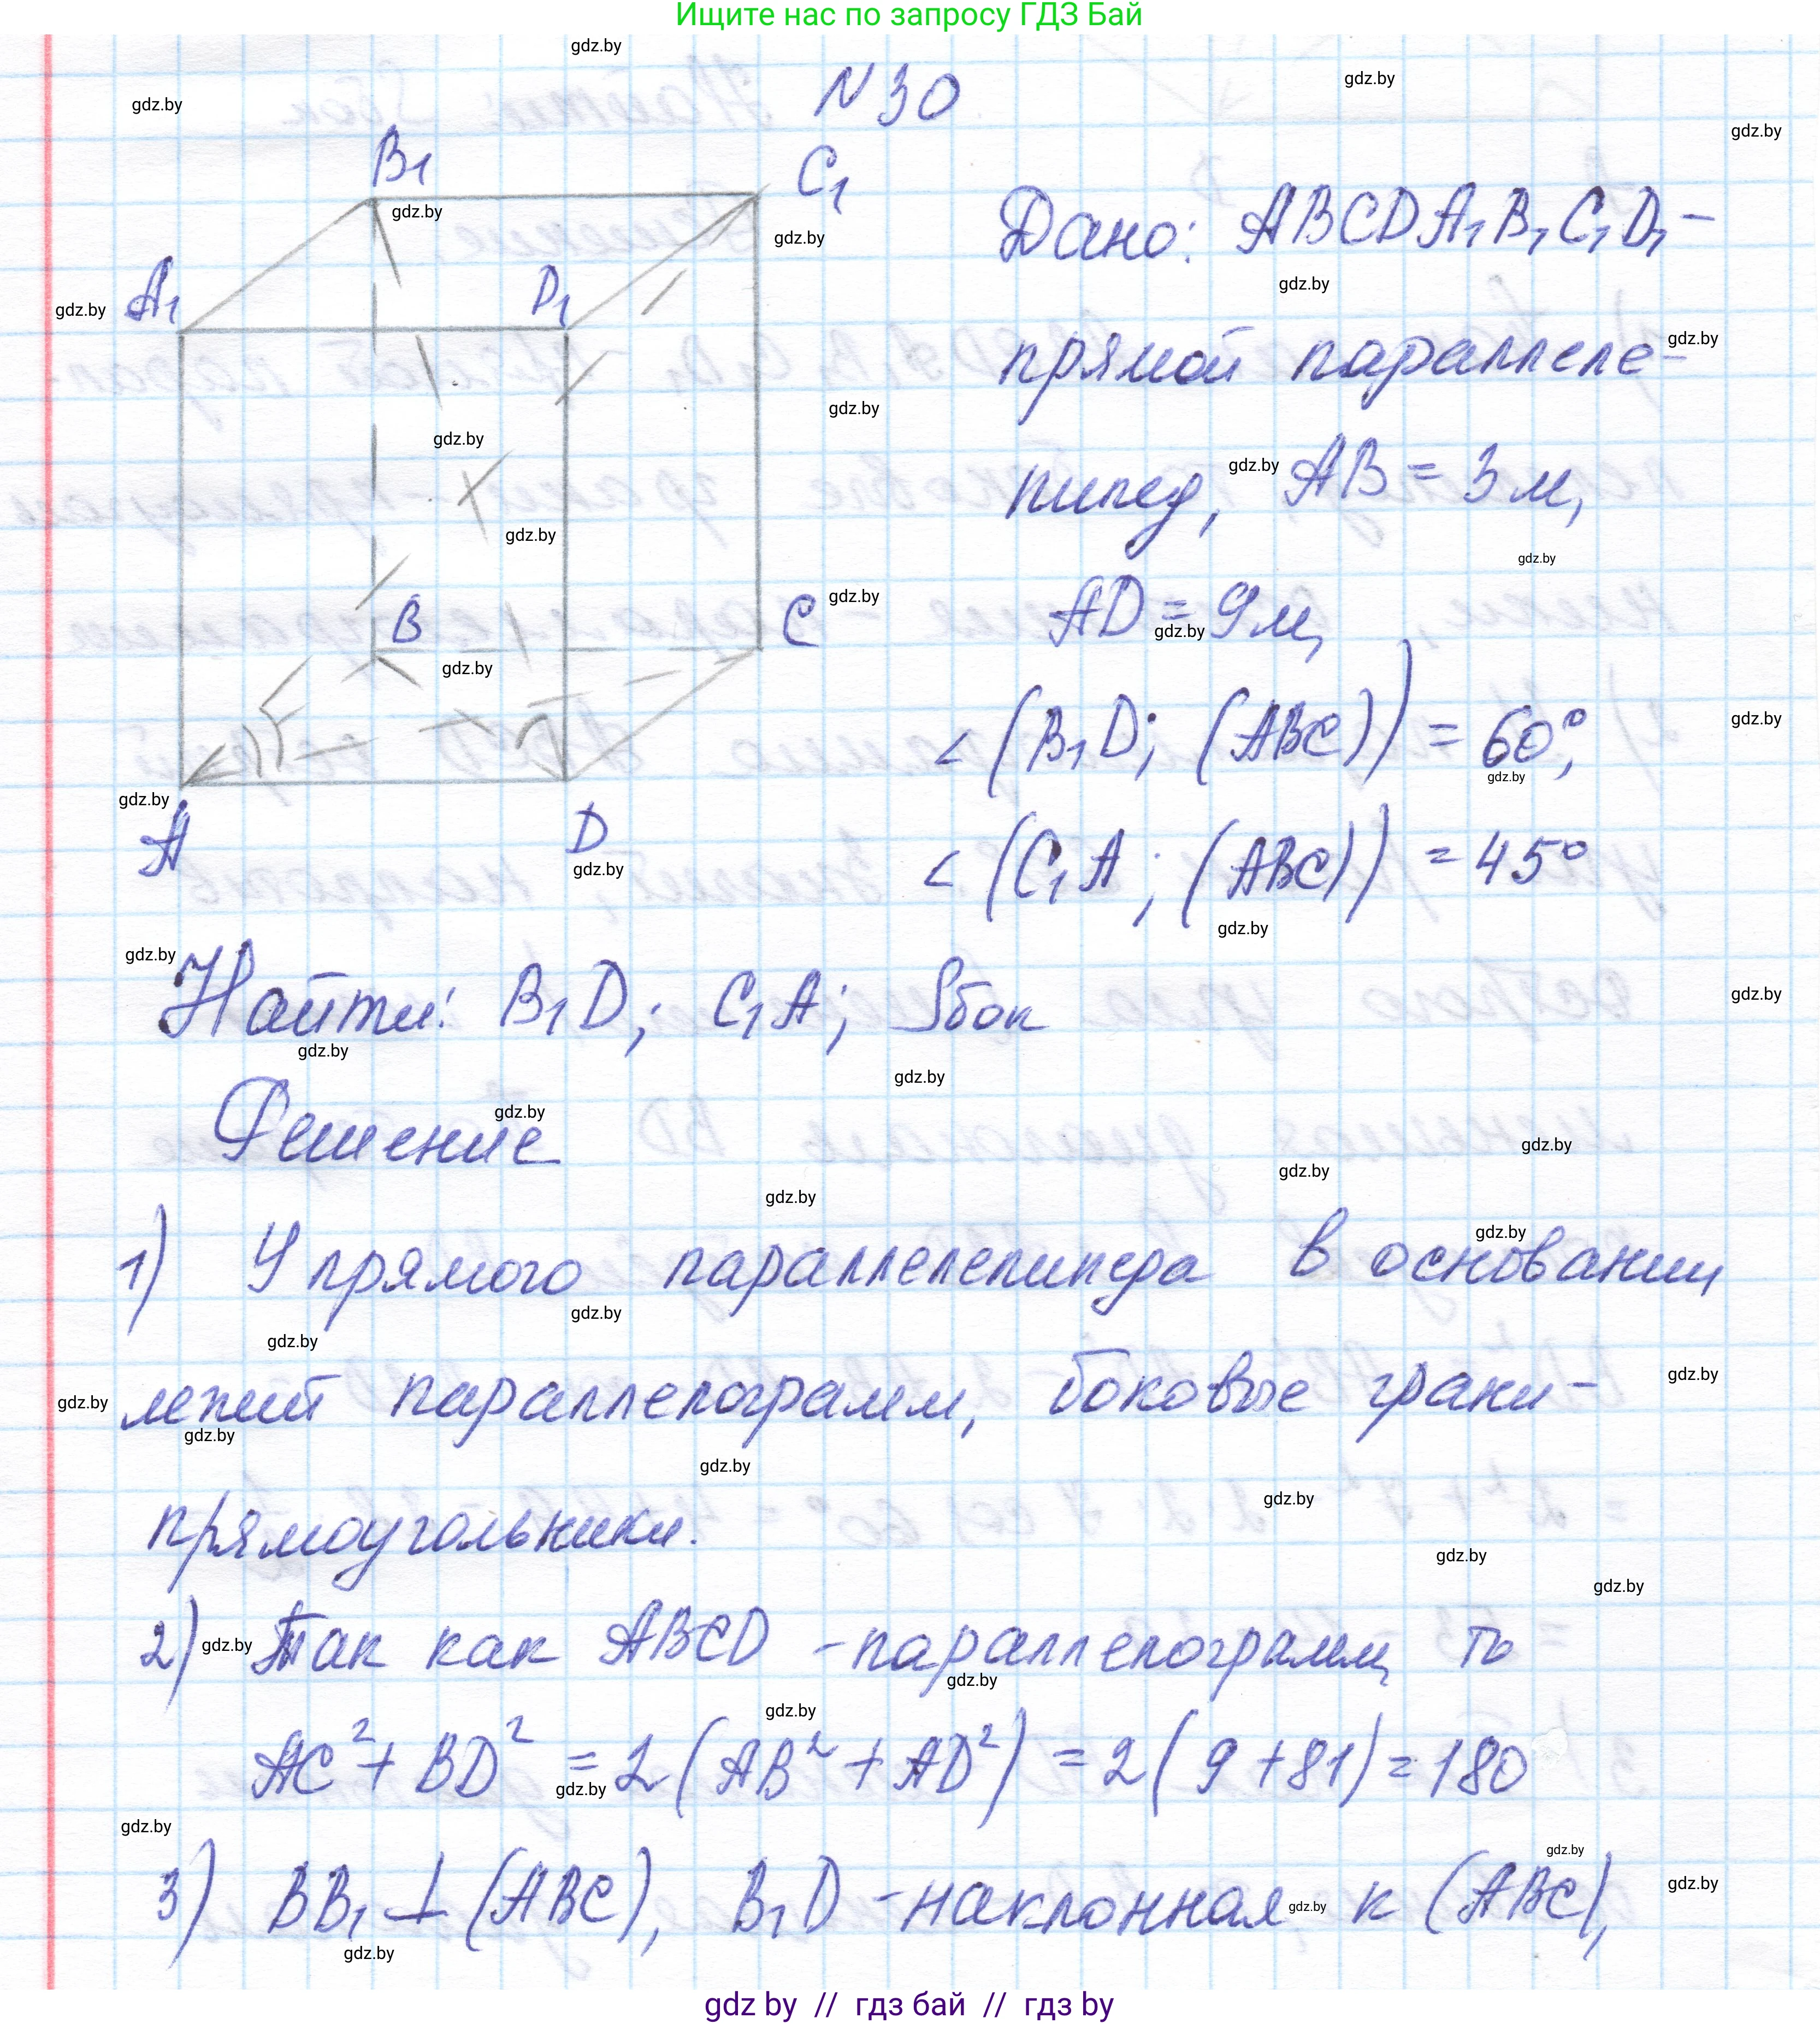 Ищите нас по запросу ГДЗ Бай
N 30
B₁
C₁
A₁
D₁
B
C
A
D
Дано: ABCDA₁B₁C₁D₁ –
прямой параллеле-
пипед, AB = 3 м,
AD = 9 м,
∠(B₁D; (ABC)) = 60°;
∠(C₁A; (ABC)) = 45°
Найти: B₁D; C₁A; Sбок
Решение
1) У прямого параллелепипеда в основании
лежит параллелограмм, боковые грани –
прямоугольники.
2) Так как ABCD - параллелограмм, то
AC² + BD² = 2(AB² + AD²) = 2(9 + 81) = 180
3) BB₁ ⊥ (ABC), B₁D - наклонная к (ABC),
gdz by // гдз бай // гдз by